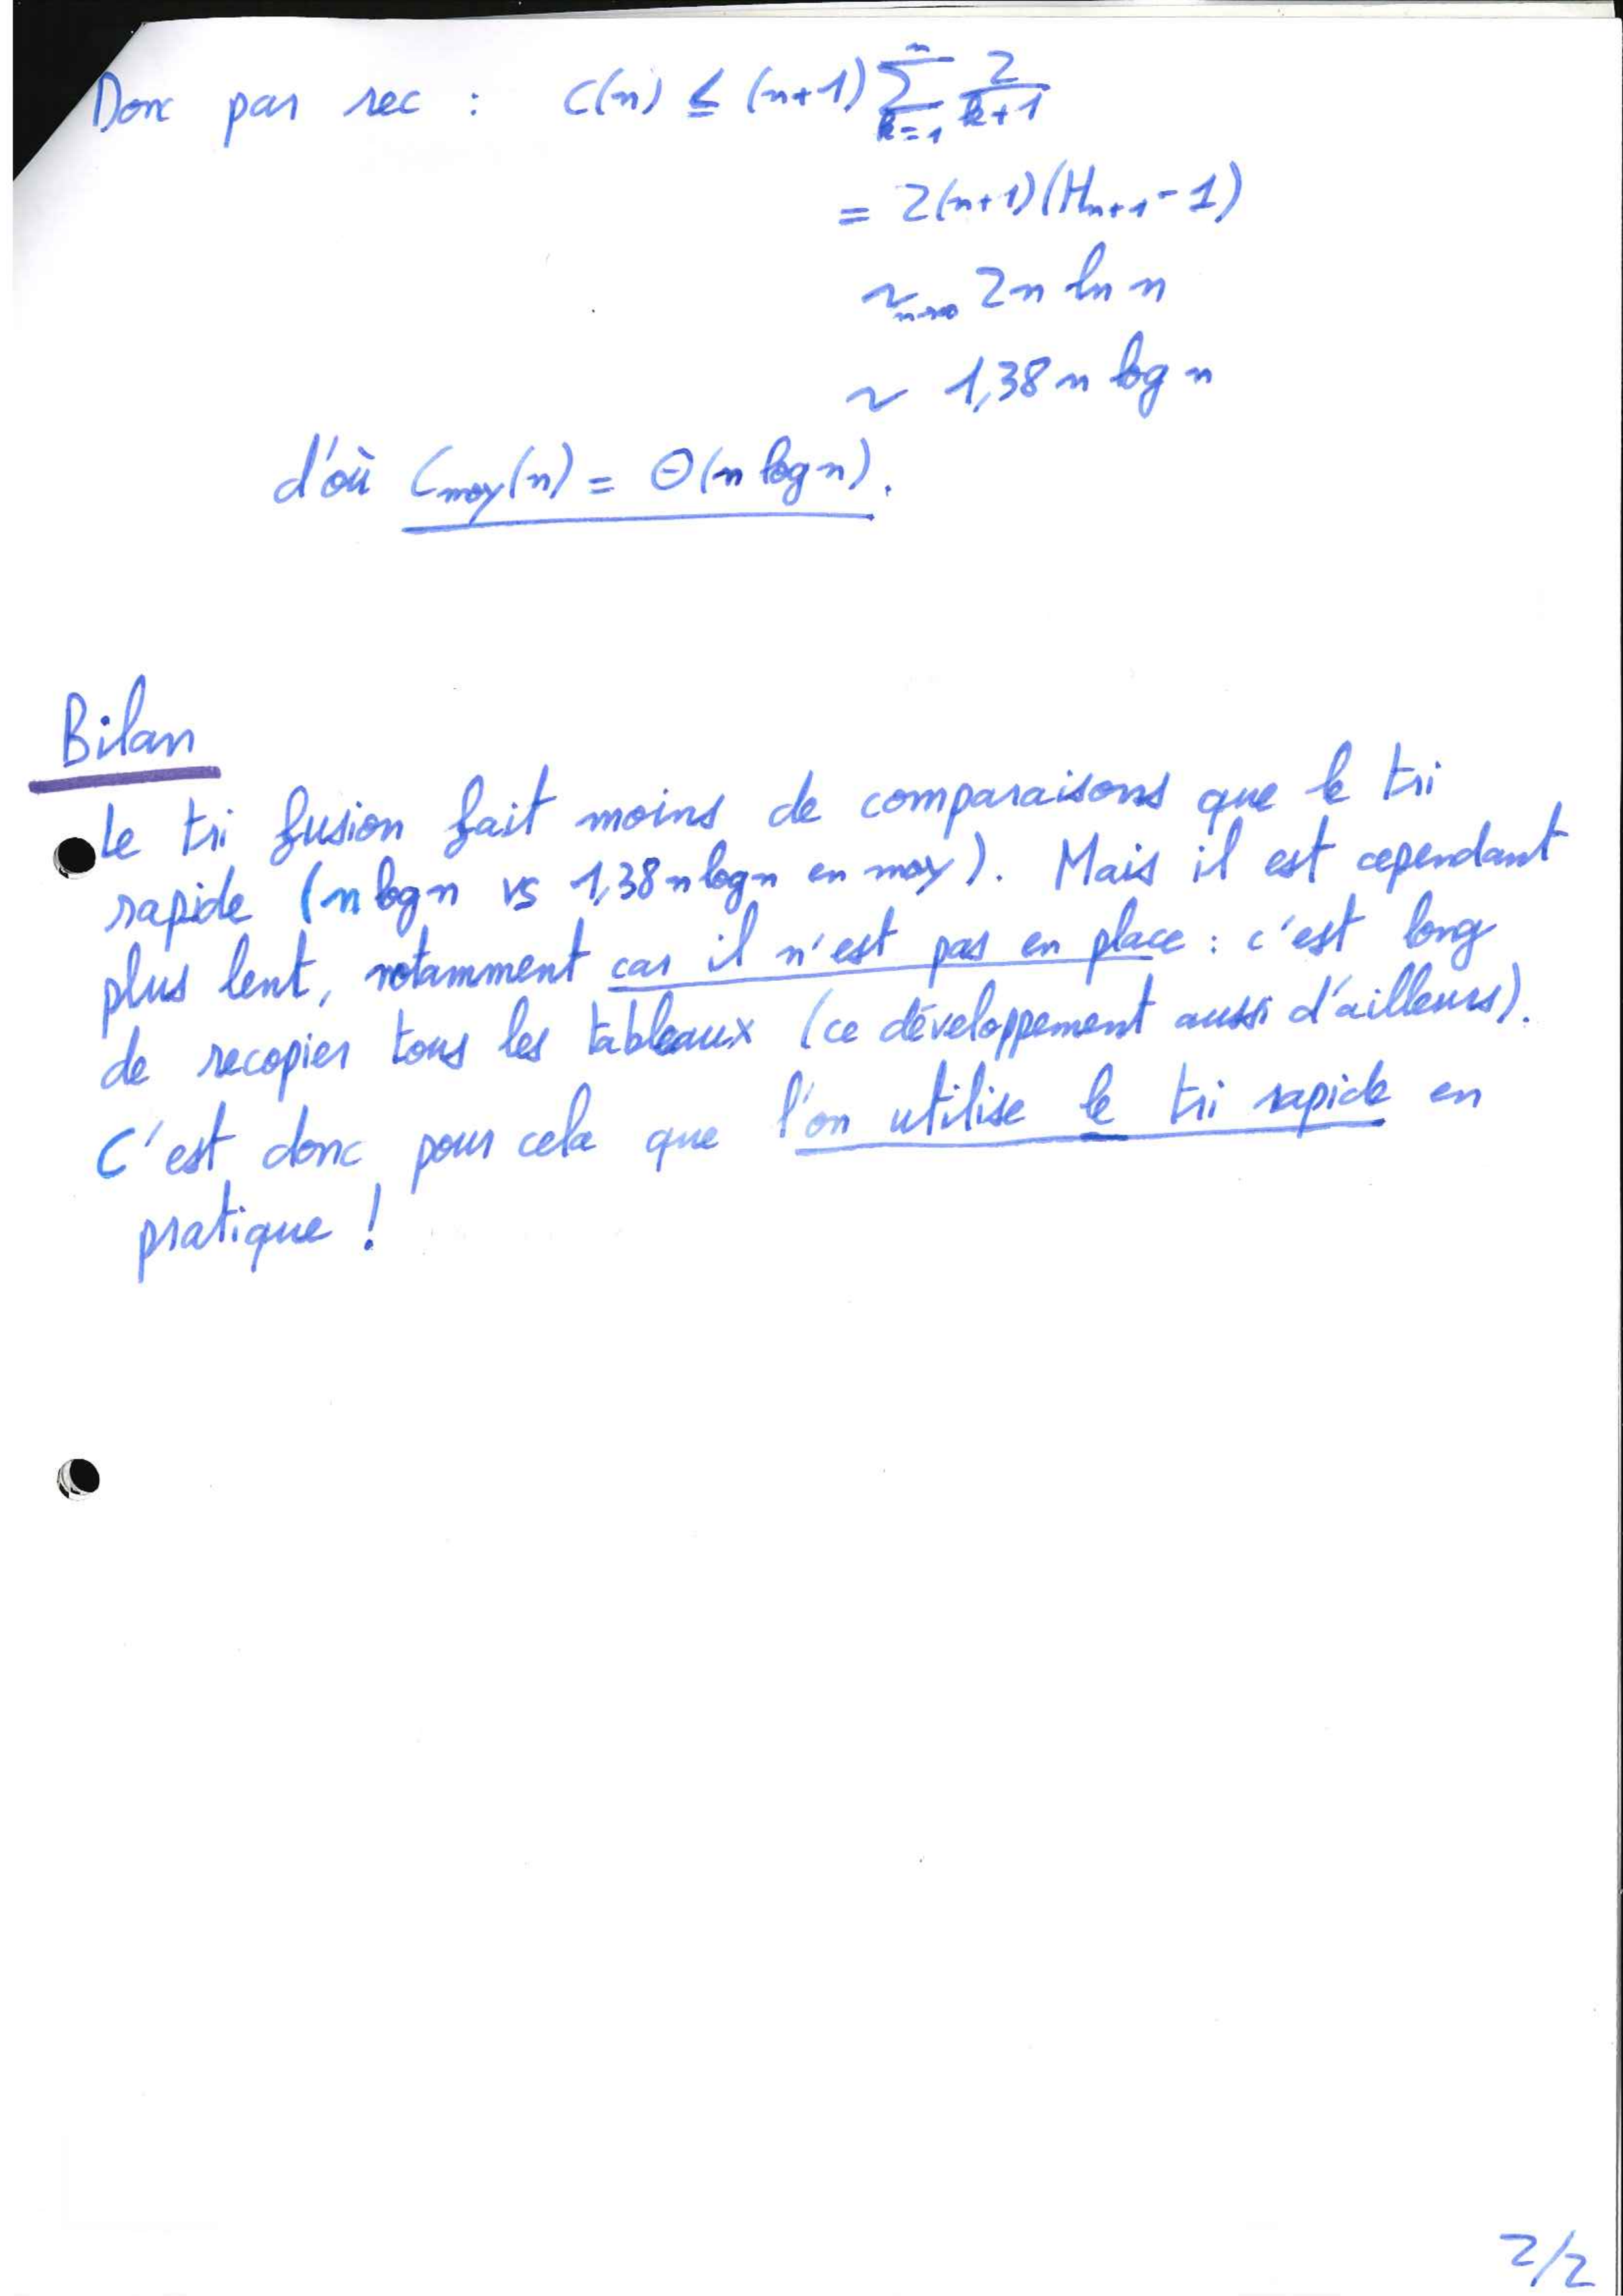 Donc par rec : C(n) ≤ (n+1) ∑_{k=1}^{n} 2/(k+1)
= 2(n+1)(H_{n+1} - 1)
∼_{n→∞} 2n ln n
∼ 1,38 n log n
d'où C_{moy}(n) = Θ(n log n).
Bilan
Le tri fusion fait moins de comparaisons que le tri
rapide (n log n vs 1,38 n log n en moy). Mais il est cependant
plus lent, notamment car il n'est pas en place : c'est long
de recopier tous les tableaux (ce développement aussi d'ailleurs).
C'est donc pour cela que l'on utilise le tri rapide en
pratique !
2/2